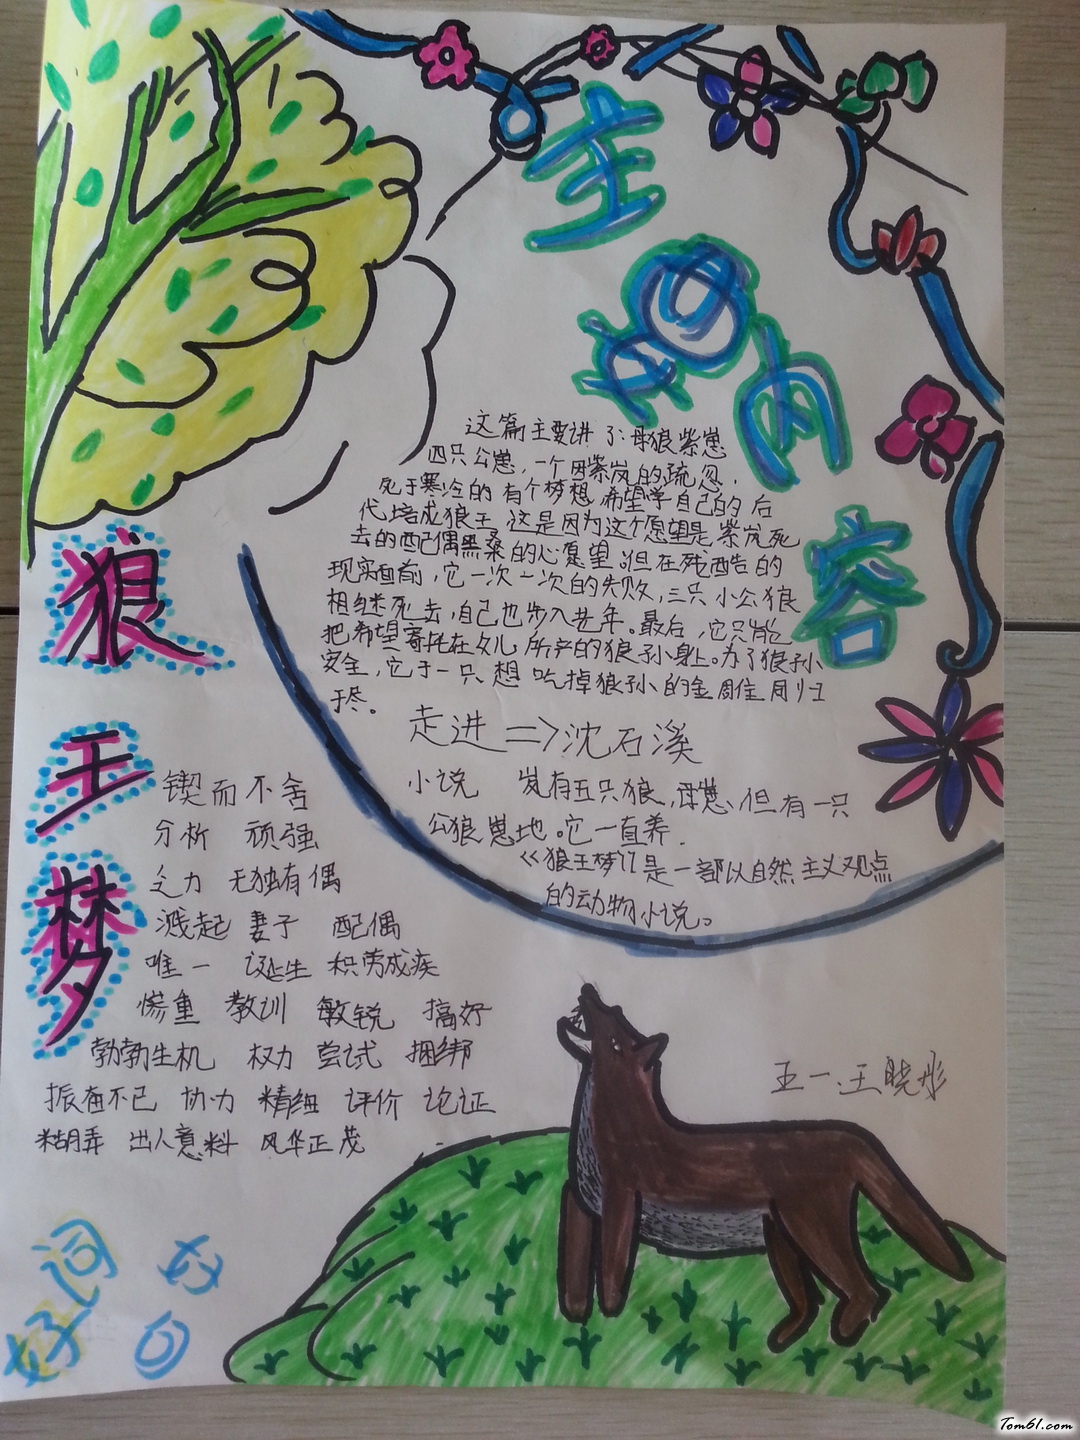 主要内容
这篇主要讲了:母狼紫崽
四只公崽,一个因紫岚的疏忽,
死于寒冷的有个梦想,希望学自己的后
代培成狼王,这是因为这个愿望是紫岚死
去的配偶黑桑的心愿望。但在残酷的
现实面前,它一次一次的失败,三只小公狼
相继死去,自己也步入老年。最后,它只能
把希望寄托在女儿所产的狼孙身上。为了狼孙
安全,它于一只想吃掉狼孙的金雕同归
于尽。
走进=>沈石溪
小说 岚有五只狼,母崽、但有一只
公狼崽地。它一直养.
《狼王梦》是一部以自然主义观点
的动物小说。
狼王梦
锲而不舍
分析 顽强
乏力 无独有偶
溅起 妻子 配偶
唯一 诞生 积劳成疾
惨重 教训 敏锐 搞好
勃勃生机 权力 尝试 捆绑
振奋不已 协力 精细 评价 论证
糊弄 出人意料 风华正茂
五一、王晓彤
好词
好句
Tom61.com